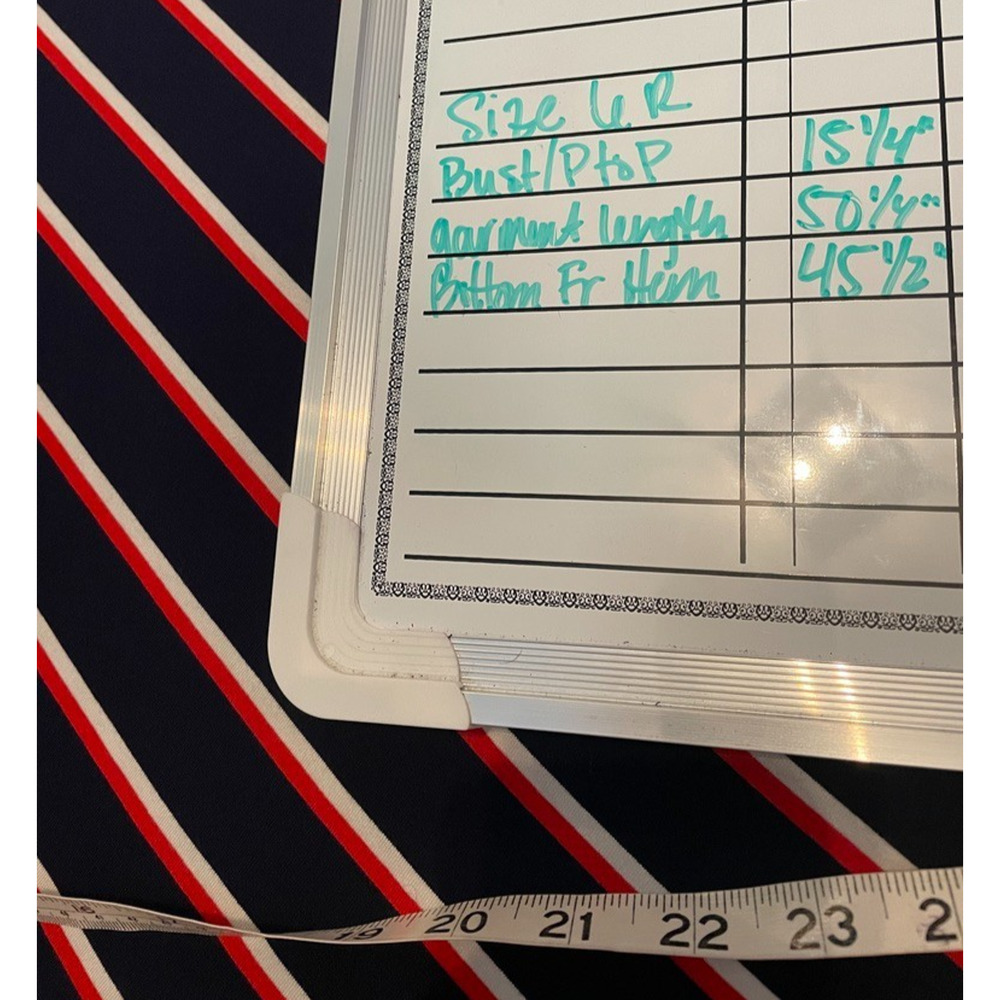 Size 6 R
Bust/P to P 15 1/4"
garment length 50 1/4"
Bottom Fr Hem 45 1/2"
19 20 21 22 23 2